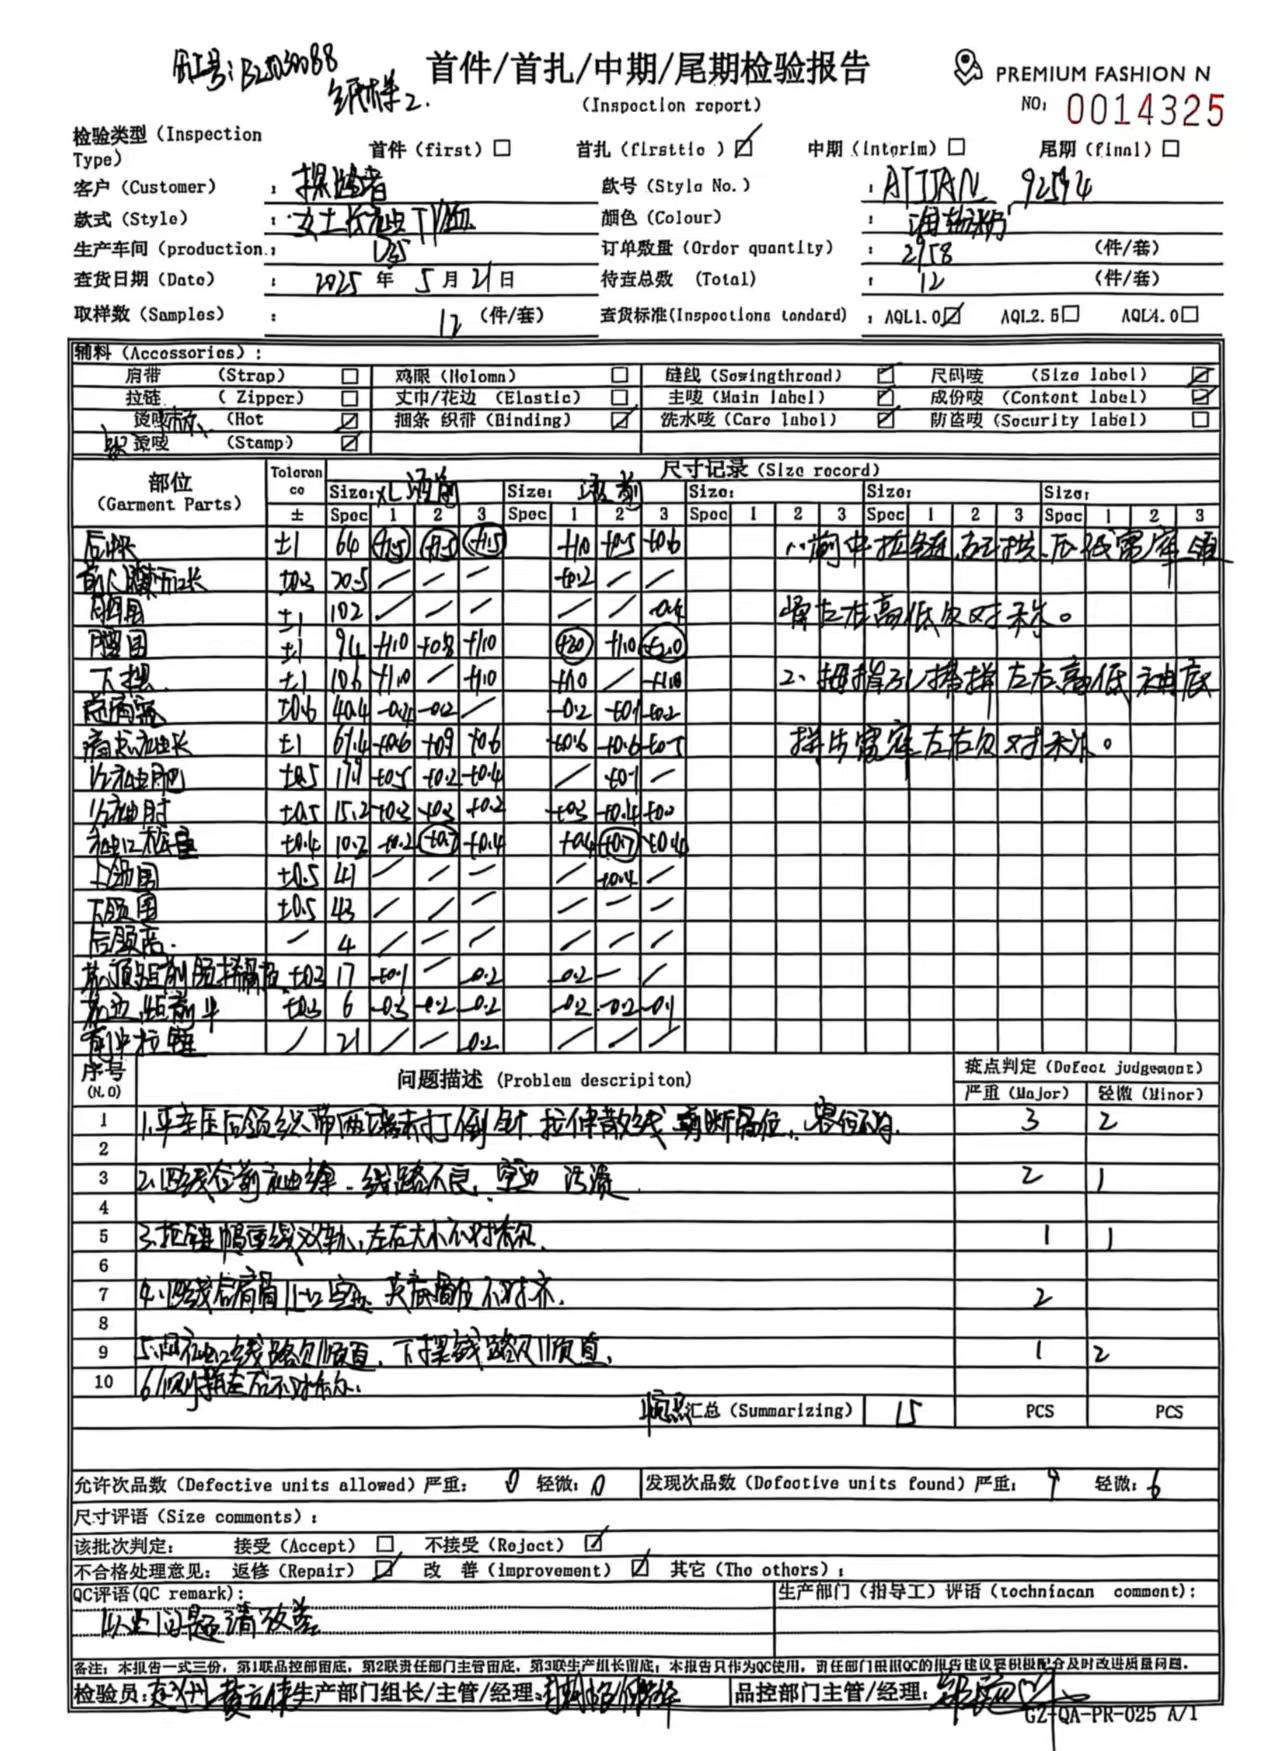 首件/首扎/中期/尾期检验报告
(Inspection report)
PREMIUM FASHION N
NO: 0014325
纸样2.
检验类型 (Inspection Type) 首件 (first) □ 首扎 (firsttie ) ☑ 中期 (interim) □ 尾期 (final) □
客户 (Customer) : 探路者 款号 (Style No.) : 92594
款式 (Style) : 女士长袖T恤 颜色 (Colour) :
生产车间 (production.: 订单数量 (Order quantity) : 2958 (件/套)
查货日期 (Date) : 2025 年 5 月 21 日 待查总数 (Total) : 12 (件/套)
取样数 (Samples) : 12 (件/套) 查货标准(Inspections tandard) : AQL1.0☑ AQL2.5□ AQL4.0□
辅料 (Accessories) :
肩带 (Strap) □ 鸡眼 (Holomn) □ 缝线 (Sewingthread) ☑ 尺码唛 (Size label) ☑
拉链 ( Zipper) □ 丈巾/花边 (Elastic) □ 主唛 (Main label) ☑ 成份唛 (Content label) ☑
(Hot ☑ 捆条 织带 (Binding) ☑ 洗水唛 (Care label) ☑ 防盗唛 (Security label) □
烫唛 (Stamp) ☑
部位 (Garment Parts) Toleran ce ± 尺寸记录 (Size record)
Size: XL 洗前 Size: 洗前 Size: Size: Size:
Spec 1 2 3 Spec 1 2 3 Spec 1 2 3 Spec 1 2 3 Spec 1 2 3
后中长 ±1 64 +1.5 +1.5 +1.5 +1.0 +0.5 +0.6
±0.3 20.5 / / / +0.2
胸围 ±1 102 / / / -0.4
腰围 ±1 94 +1.0 +0.8 +1.0 +2.0 +1.0 +2.0
下摆 ±1 106 +1.0 / +1.0 +1.0 / +1.0
总肩宽 ±0.6 40.4 -0.4 -0.2 / -0.2 +0.1 +0.2
±1 67.4 +0.6 +0.9 +0.6 +0.6 +0.6 +0.5
1/2袖肥 ±0.5 17.9 +0.5 +0.2 +0.4 / +0.1 /
1/2袖肘 ±0.5 15.2 +0.3 +0.3 +0.2 +0.3 +0.4
±0.4 10.2 +0.2 +0.7 +0.4 +0.4 +0.7 +0.4
上领围 ±0.5 41 / / / / +0.4 /
下领围 ±0.5 43 / / / / / /
后领高. / 4 / / / / / /
±0.3 17 +0.1 / -0.2 -0.2 / /
±0.3 6 -0.3 -0.2 -0.2 -0.2 -0.2 -0.1
前中拉链 / 21 / / -0.2 / / /
左右高低及对称。
2、拇指孔 左右高低 袖底
拼片宽窄左右及对称。
序号 (N.O) 问题描述 (Problem descripiton) 疵点判定 (Defect judgement)
严重 (Major) 轻微 (Minor)
1 1.平车压后领织带两端未打倒针. 拉伸散线 3 2
2
3 2.四线合前袖缝. 线路不良. 污渍 2 1
4
5 3.拉链 重线双轨,左右大小不对称. 1 1
6
7 4.四线合肩 不对齐. 2
8
9 5. 袖口线路欠顺直, 下摆线路欠顺直. 1 2
10 6.侧 左右不对称.
汇总 (Summarizing) 15 PCS PCS
允许次品数 (Defective units allowed) 严重: 0 轻微: 0 发现次品数 (Defective units found) 严重: 9 轻微: 6
尺寸评语 (Size comments) :
该批次判定: 接受 (Accept) □ 不接受 (Reject) ☑
不合格处理意见: 返修 (Repair) ☑ 改 善 (improvement) ☑ 其它 (The others) :
QC评语(QC remark): 生产部门 (指导工) 评语 (techniacan comment):
以上问题请改善
备注: 本报告一式三份, 第1联品控部留底, 第2联责任部门主管留底, 第3联生产组长留底; 本报告只作为QC使用, 责任部门根据QC的报告建议要积极配合及时改进质量问题.
检验员: 生产部门组长/主管/经理: 品控部门主管/经理:
GZ-QA-PR-025 A/1